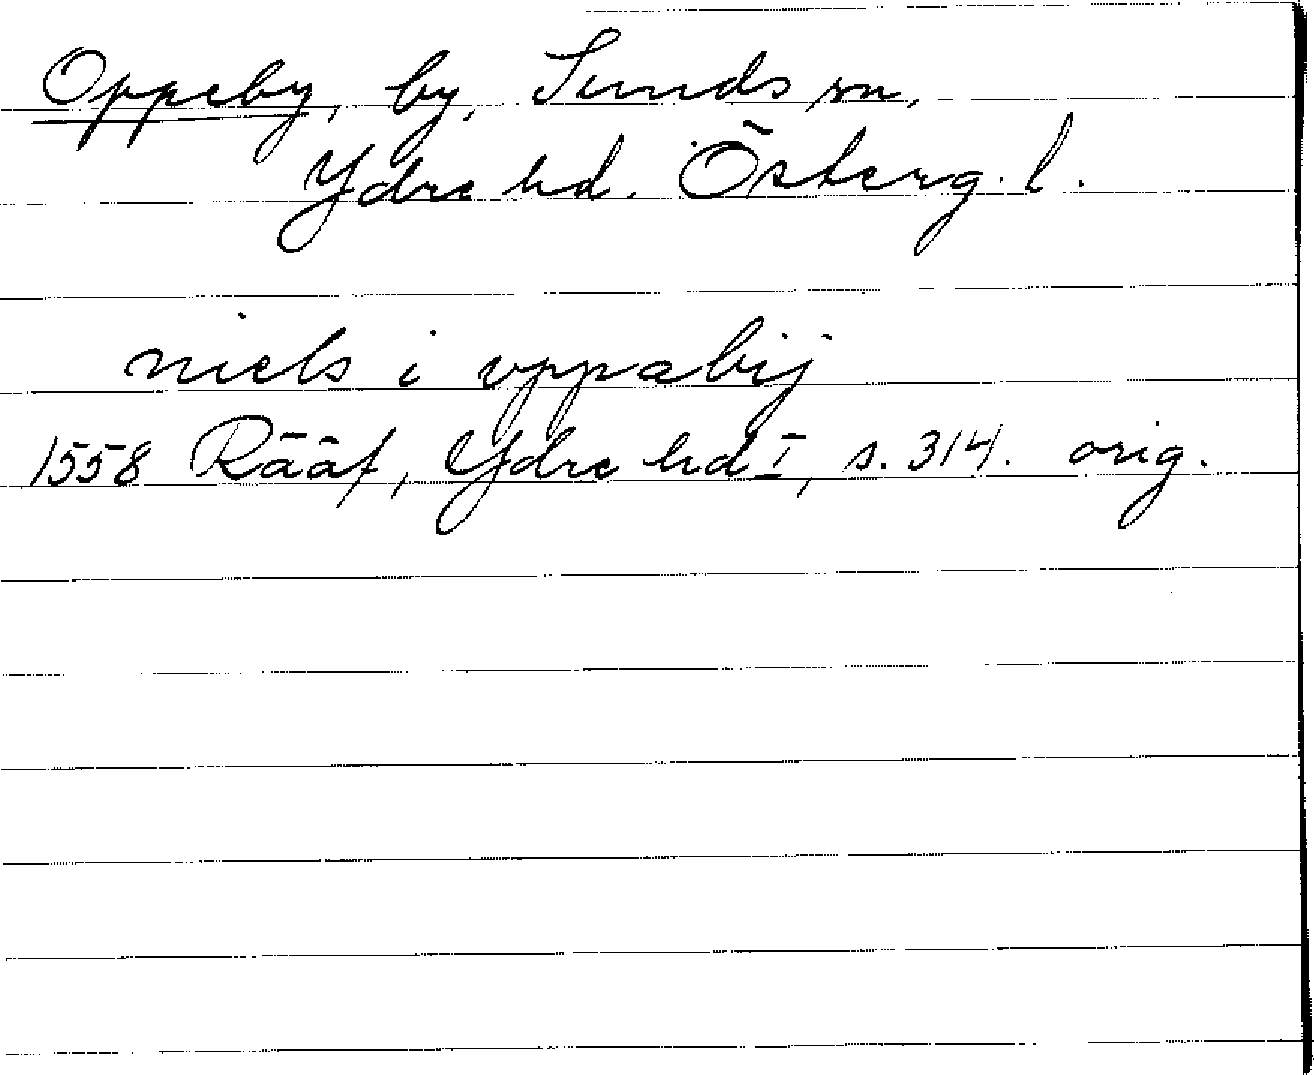 Oppeby, by, Sunds sn,
Ydre hd. Österg. l.
niels i vppabÿ
1558 Rääf, Ydre hd I, s. 314. orig.